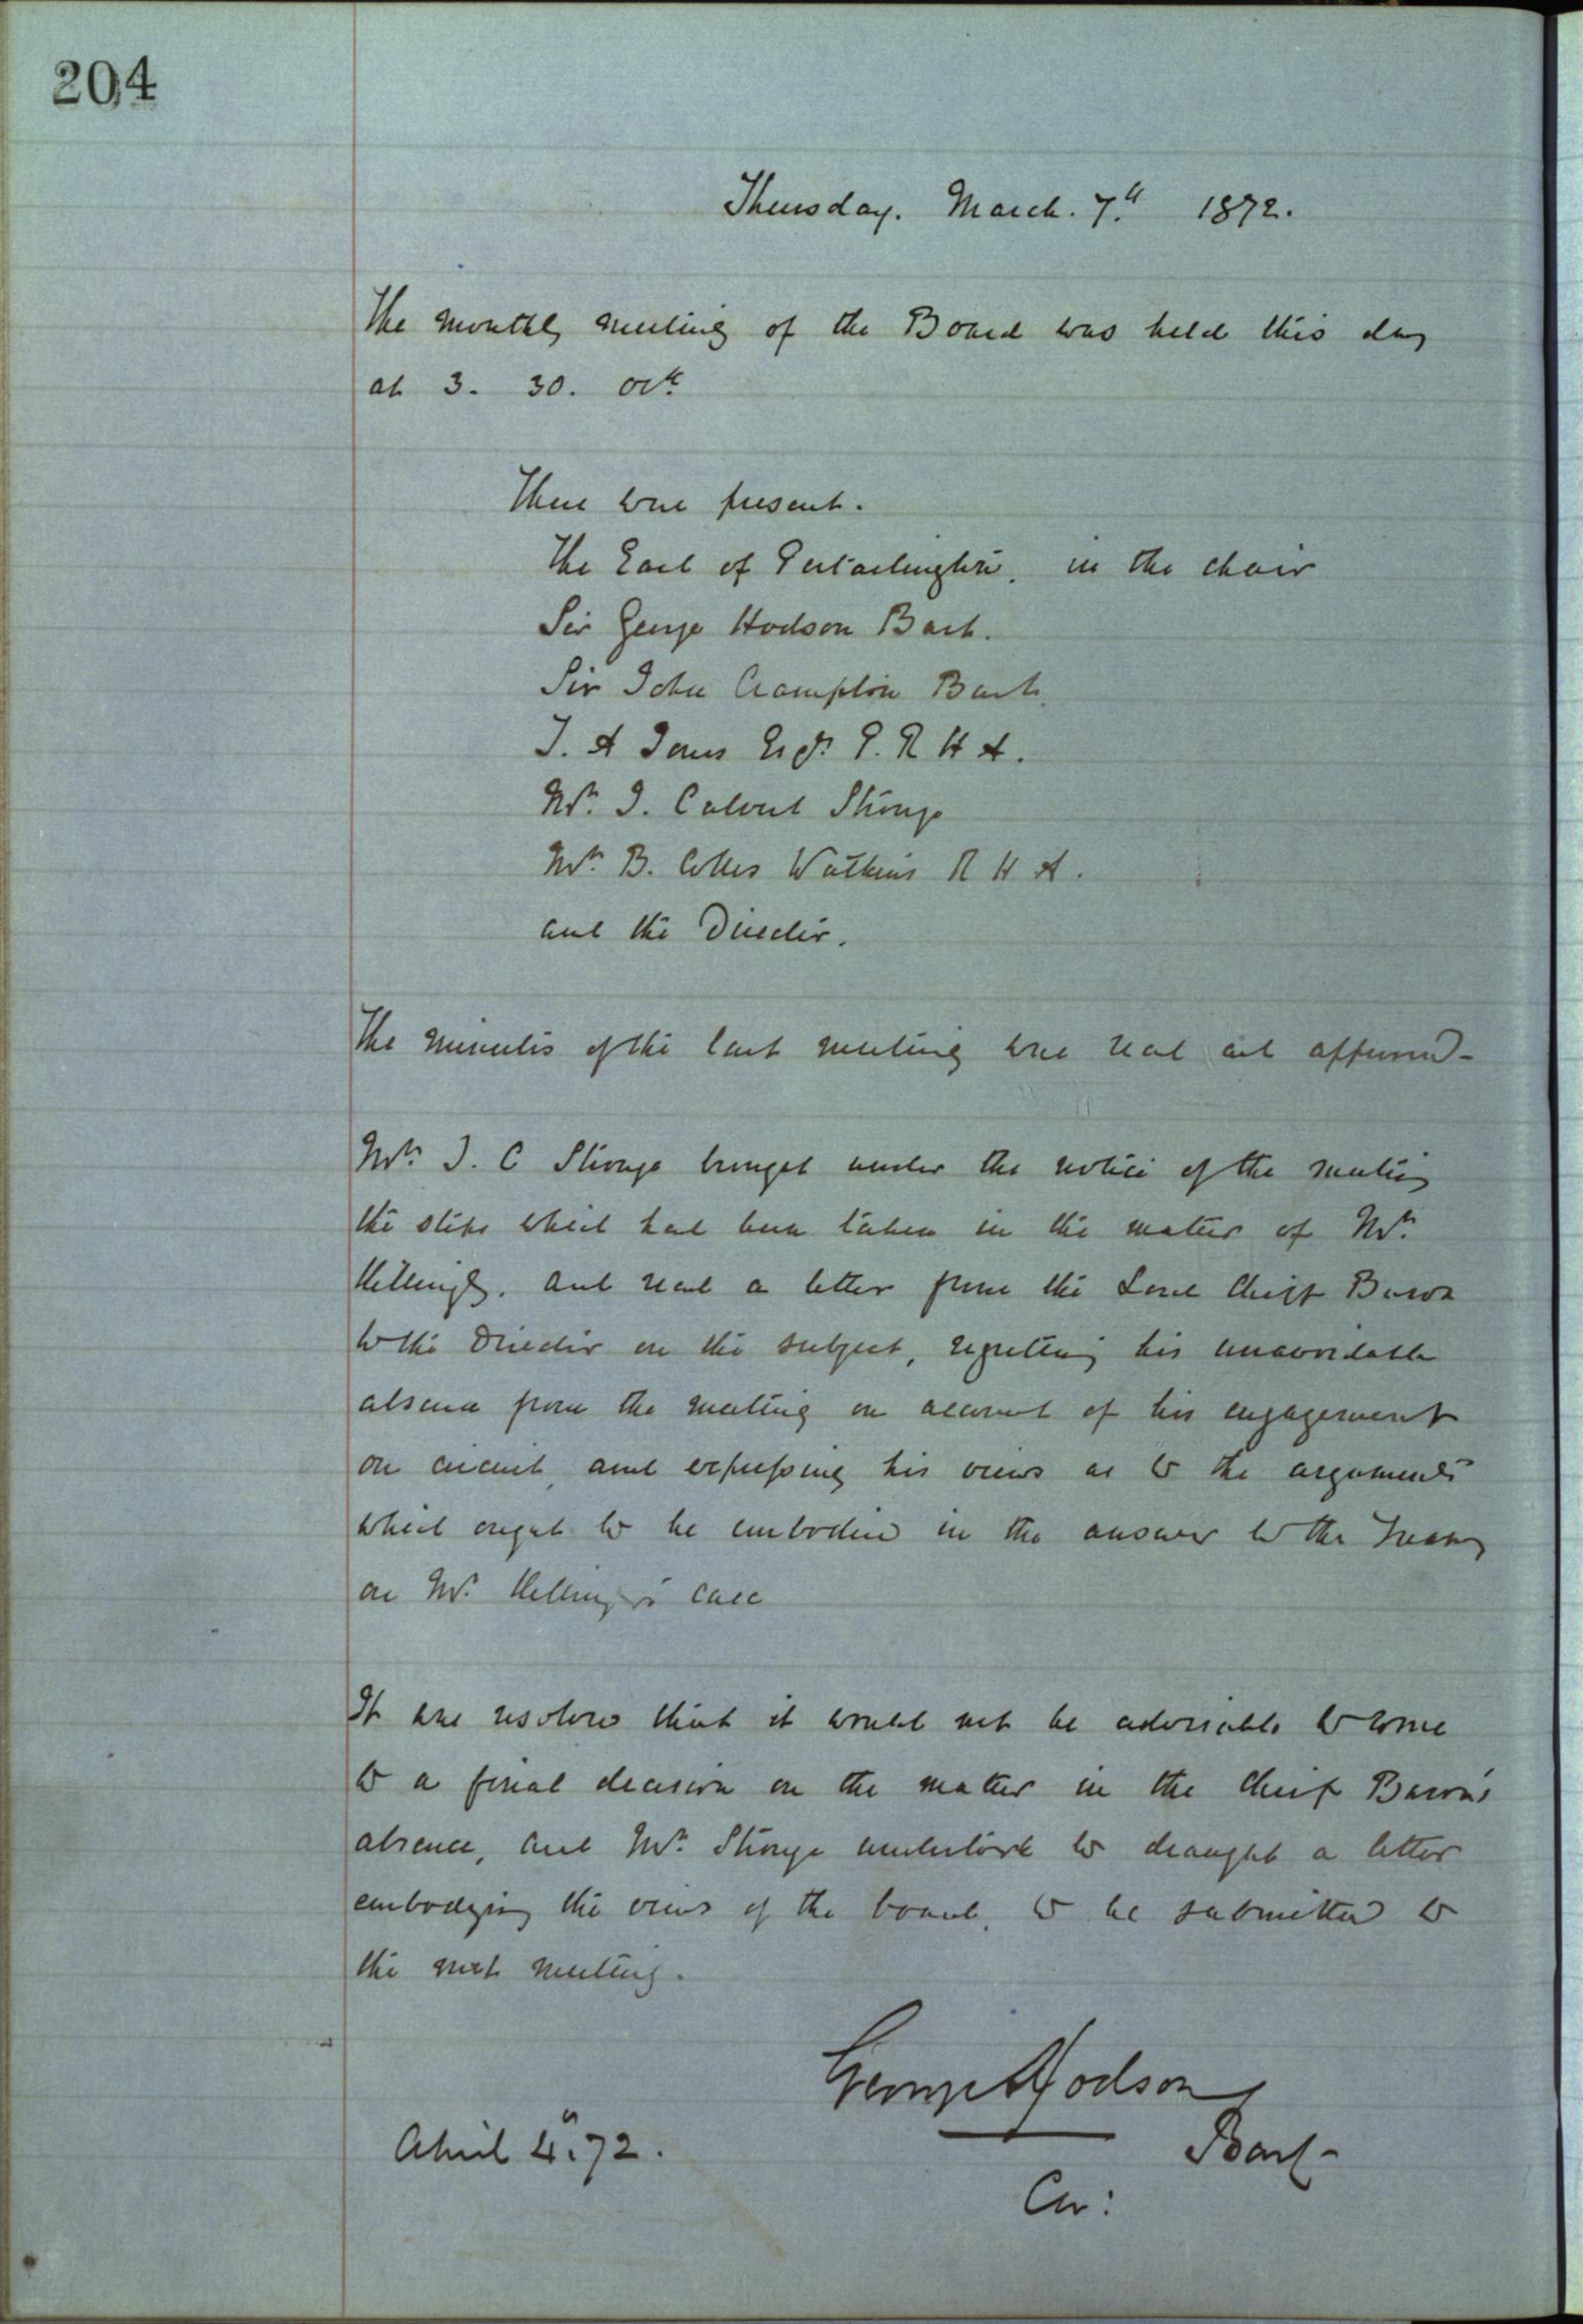 204
Thursday. March. 7th 1872.
The monthly meeting of the Board was held this day
at 3. 30. ock
There were present.
The Earl of Portarlington. in the chair
Sir George Hodson Bart.
Sir John Crampton Bart.
T. A Jones Esqr. P. R H A.
Mr. J. Calvert Stronge
Mr. B. Colles Watkins R H A.
and the Director.
The minutes of the last meeting were read and affirmed-
Mr. J. C Stronge brought under the notice of the meeting
the steps which had been taken in the matter of Mr.
and read a letter from the Lord Chief Baron
to the Director on the subject, regretting his unavoidable
absence from the meeting on account of his engagement
on circuit, and expressing his views as to the arguments
which ought to be embodied in the answer to the Treasury
on Mr. case
It was resolved that it would not be advisable to come
to a final decision on the matter in the Chief Baron's
absence, and Mr. Stronge undertook to draught a letter
embodying the views of the board, to be submitted to
the next meeting.
George Hodson
Bart-
April 4. 72.